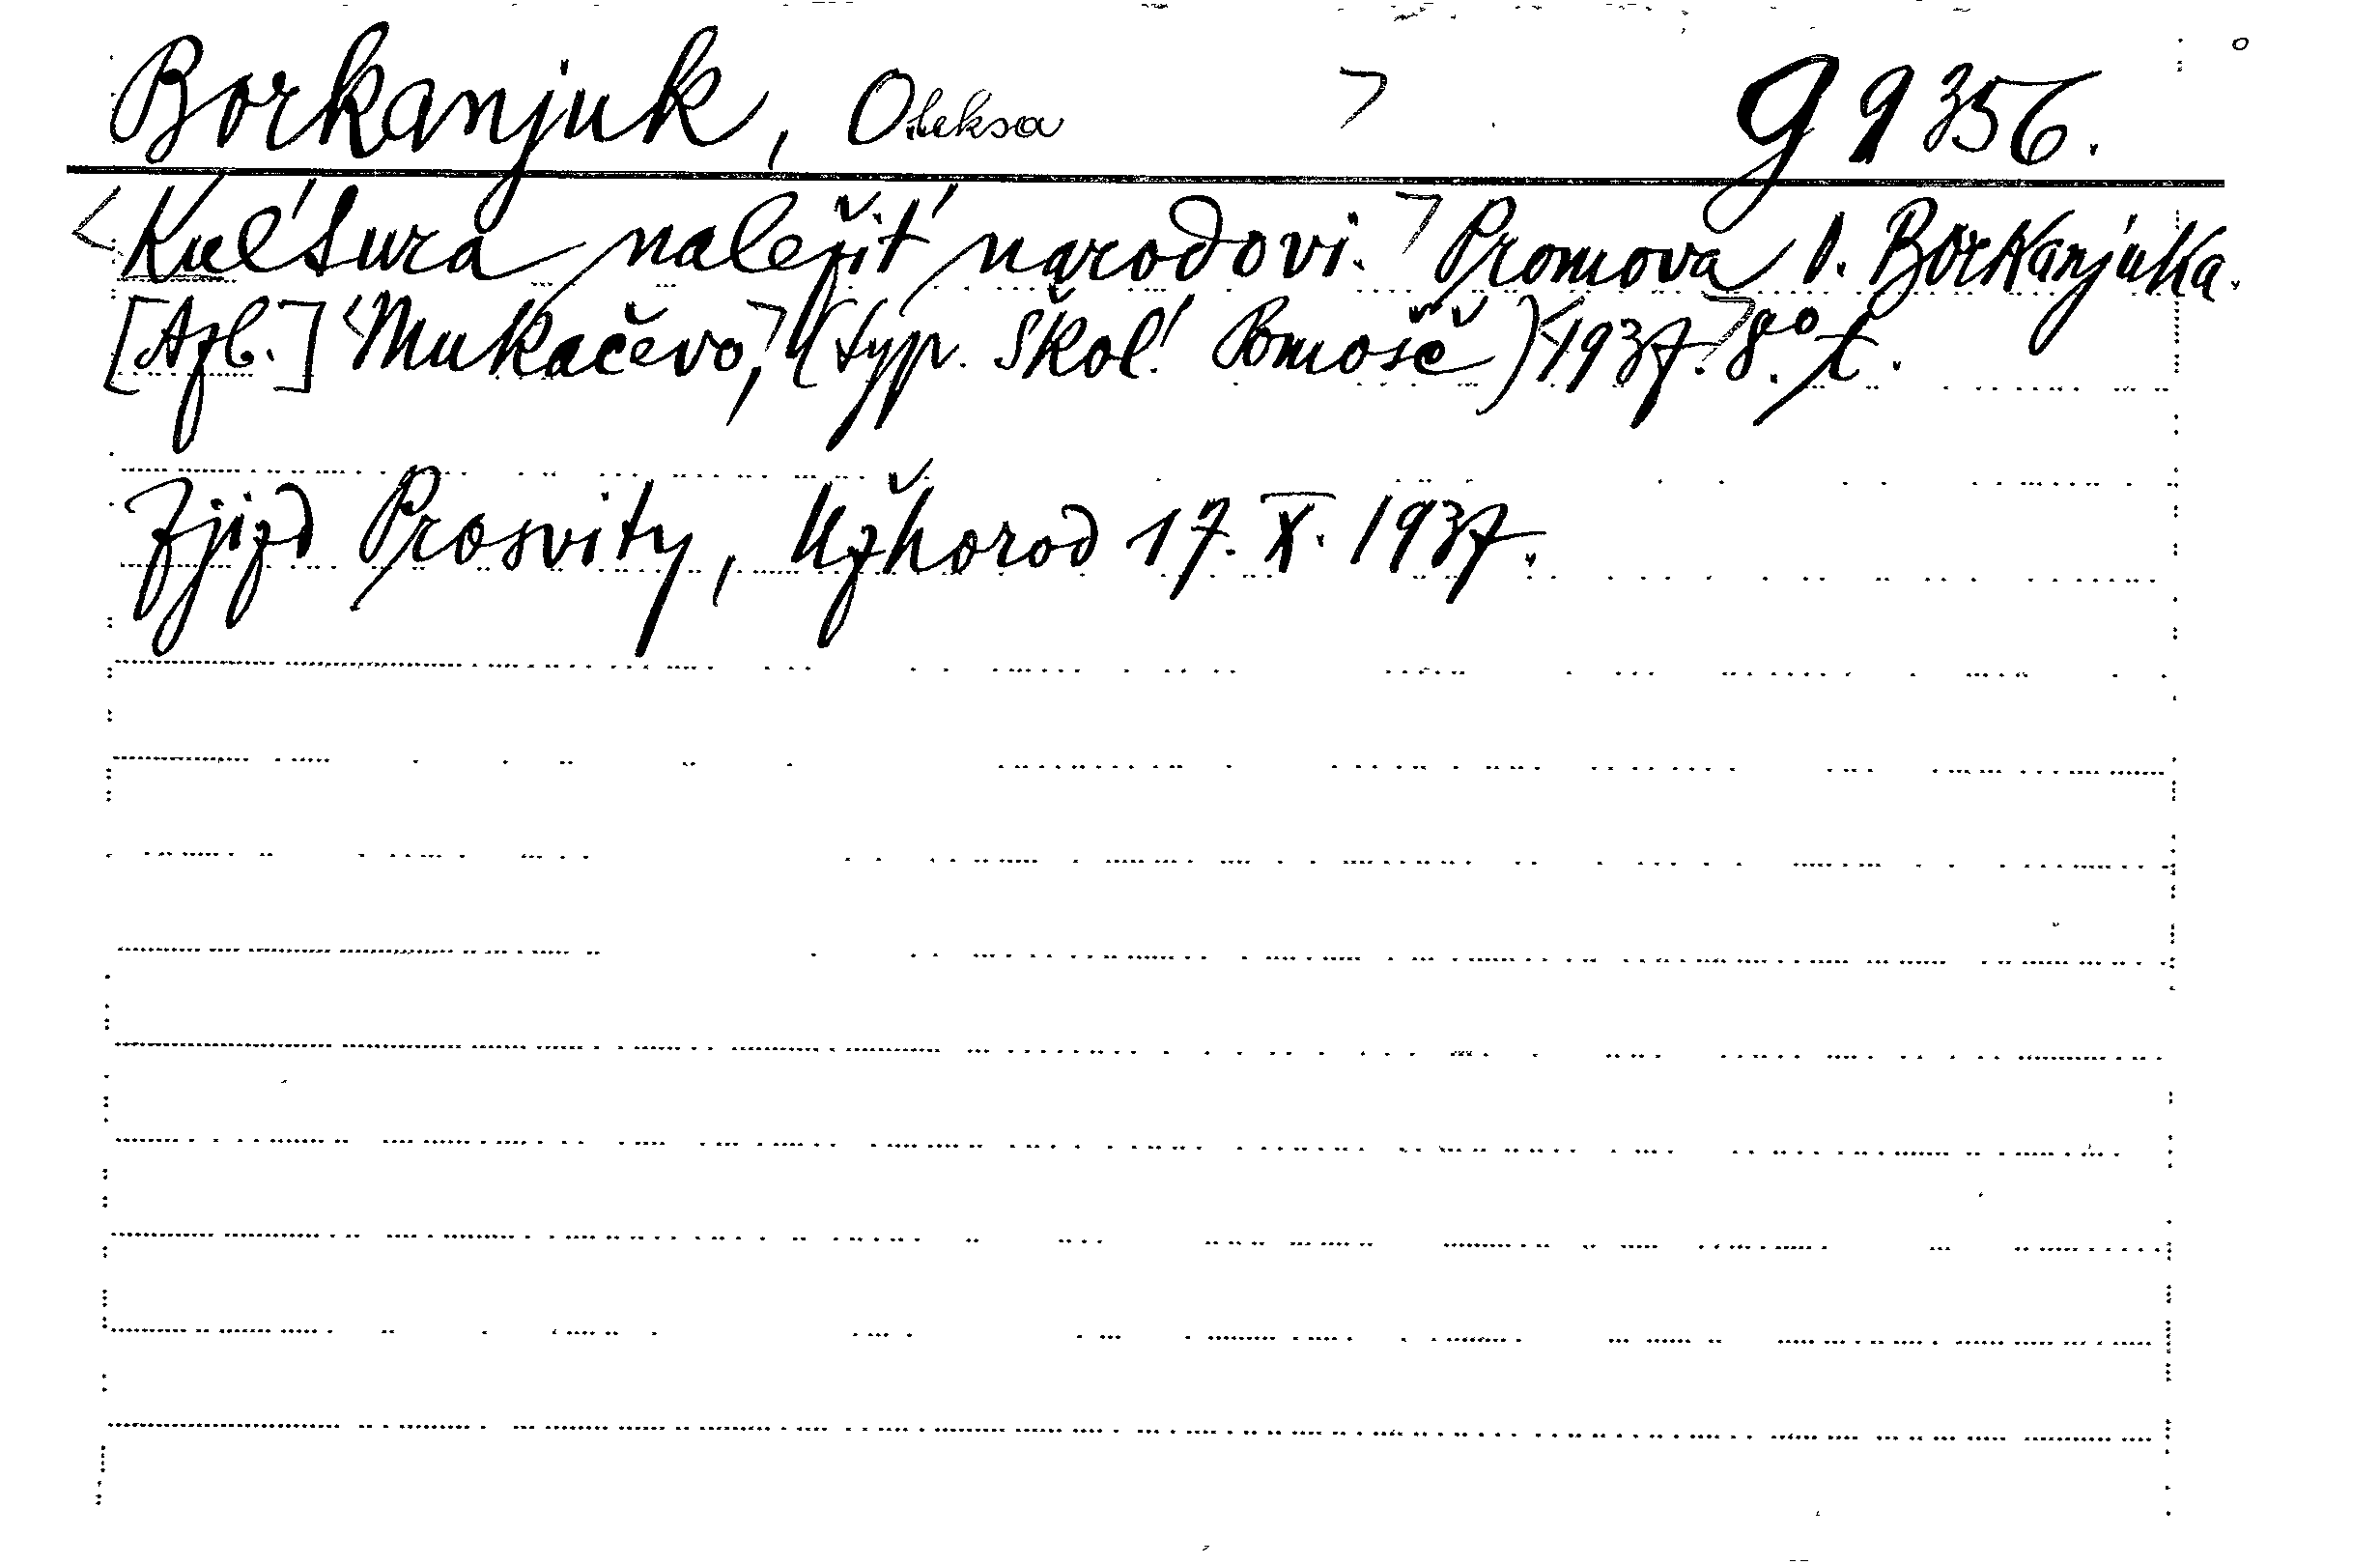 Borkanjuk, Oleksa > g 9356.
<Kul'tura naležit' narodovi.> Promova O. Borkanjuka.
[Azb.] <Mukačevo,> (typ. Škol'. Pomošč) <1937.> 8° t.
Zjizd Prosvity, Užhorod 17. X. 1937.